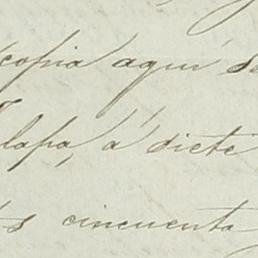 copia aquí se
lapa, á diete
s cincuenta